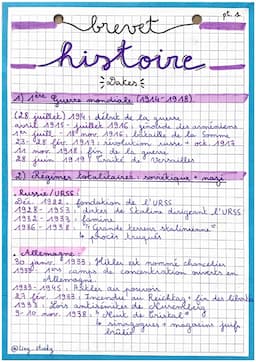 pt. 1
brevet
histoire
Dates
1) 1ère Guerre mondiale (1914-1918)
(28 juillet) 1914 : début de la guerre
avril 1915 - juillet 1916 : génocide des arméniens
1er juill. - 18 nov. 1916 : bataille de la Somme
23-28 fév. 1917 : révolution russe + oct. 1917
11 nov. 1918 : fin de la guerre
28 juin 1919 : Traité de Versailles
2) Régimes totalitaires : soviétique + nazi
Russie/URSS :
Déc. 1922 : fondation de l'URSS
1928 - 1953 : dates de Staline dirigeant l'URSS
1932 - 1933 : famine
1936 - 1938 : "Grande terreur stalinienne"
procès truqués
Allemagne :
30 janv. 1933 : Hitler est nommé chancelier
1933 : 1ers camps de concentration ouverts en
Allemagne
1933-1945 : Hitler au pouvoir
27 fév. 1933 : Incendie du Reichtag + fin des libertés
1935 : Lois antisémites de Nuremberg
9-10 nov. 1938 : "Nuit de Cristal"
synagogues + magasins juifs
brûlés